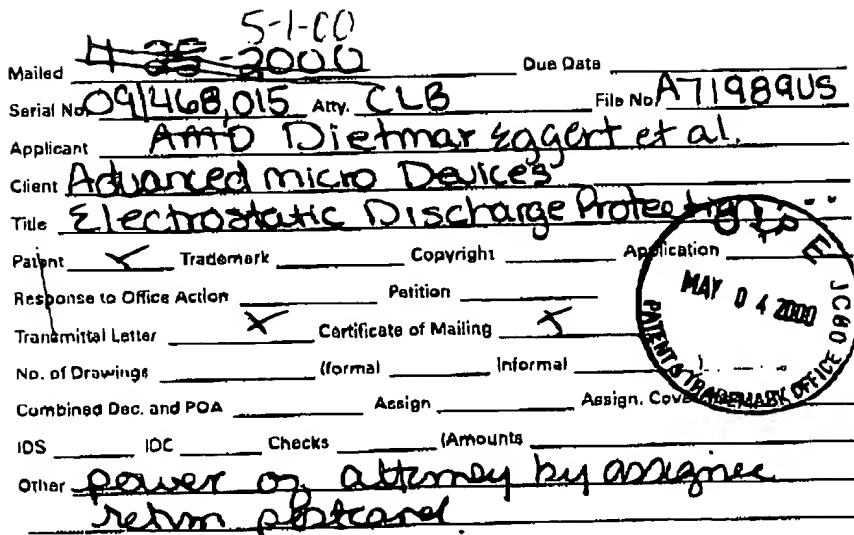 5-1-00
Mailed 4-25-2000 Due Date
Serial No. 09/468,015 Atty. CLB File No. A71989US
Applicant AMD Dietmar Eggert et al.
Client Advanced micro Devices
Title Electrostatic Discharge Protection...
Patent ✓ Trademark Copyright Application
Response to Office Action Petition
Transmittal Letter X Certificate of Mailing X
No. of Drawings (formal Informal )
Combined Dec. and POA Assign Assign. Cove
IDS IDC Checks (Amounts
Other power of attorney by assignee
return postcard
O I P E JC80
MAY 04 2000
PATENT & TRADEMARK OFFICE